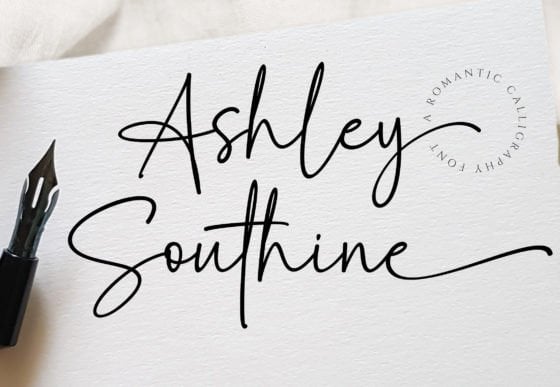 Ashley
Southine
A ROMANTIC CALLIGRAPHY FONT